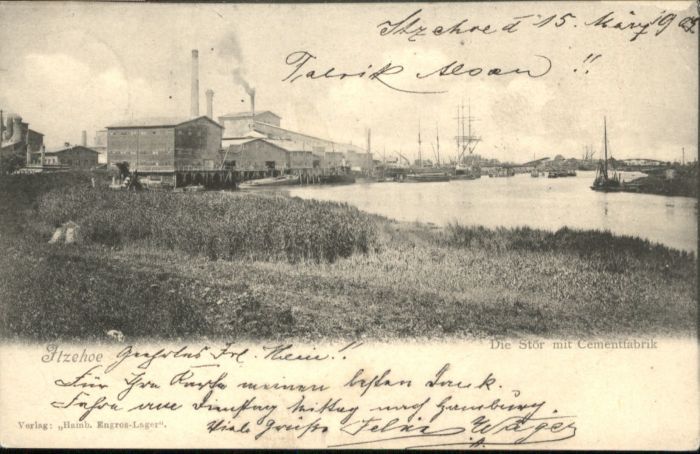 Itzehoe d 15. März 190
Fabrik Alsen !!
Die Stör mit Cementfabrik
Itzehoe
Geehrtes Frl. Hein !!
Für Ihre Karte meinen besten Dank.
Fahre am Dienstag Mittag nach Hamburg.
Viele Grüße
Verlag: „Hamb. Engros-Lager“.